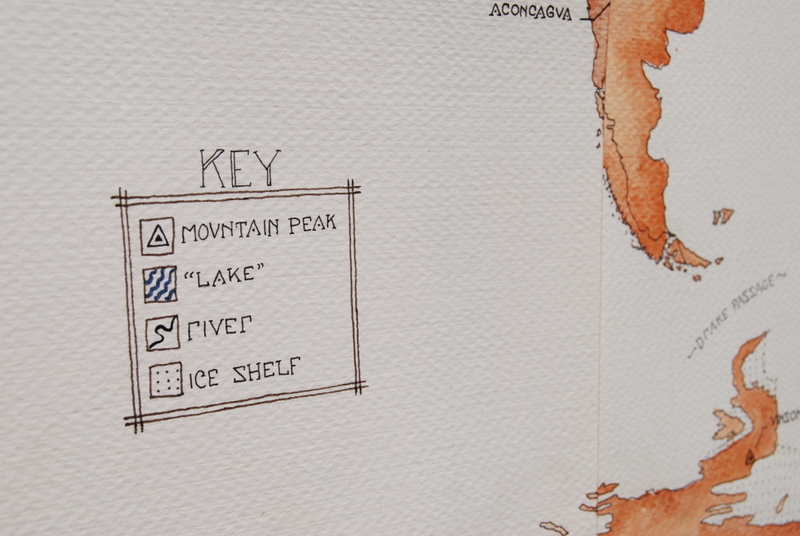 ACONCAGVA
KEY
MOVNTAIN PEAK
"LAKE"
RIVER
ICE SHELF
~DRAKE PASSAGE~